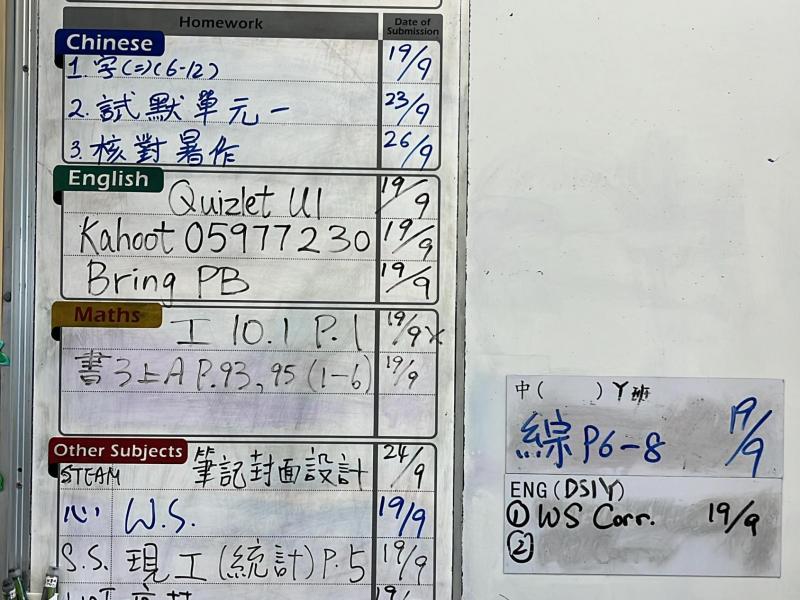 Homework Date of Submission
Chinese
1. 字(二)(6-12) 19/9
2. 試默單元一 23/9
3. 核對暑作 26/9
English
Quizlet U1 19/9
Kahoot 05977230 19/9
Bring PB 19/9
Maths
工 10.1 P.1 19/9
書3上A P.93, 95 (1-6) 19/9
Other Subjects
STEAM 筆記封面設計 24/9
心 W.S. 19/9
S.S. 現工(統計) P.5 19/9
19/
中( ) Y班
綜 P6-8 19/9
ENG (DSIY)
① WS Corr. 19/9
②